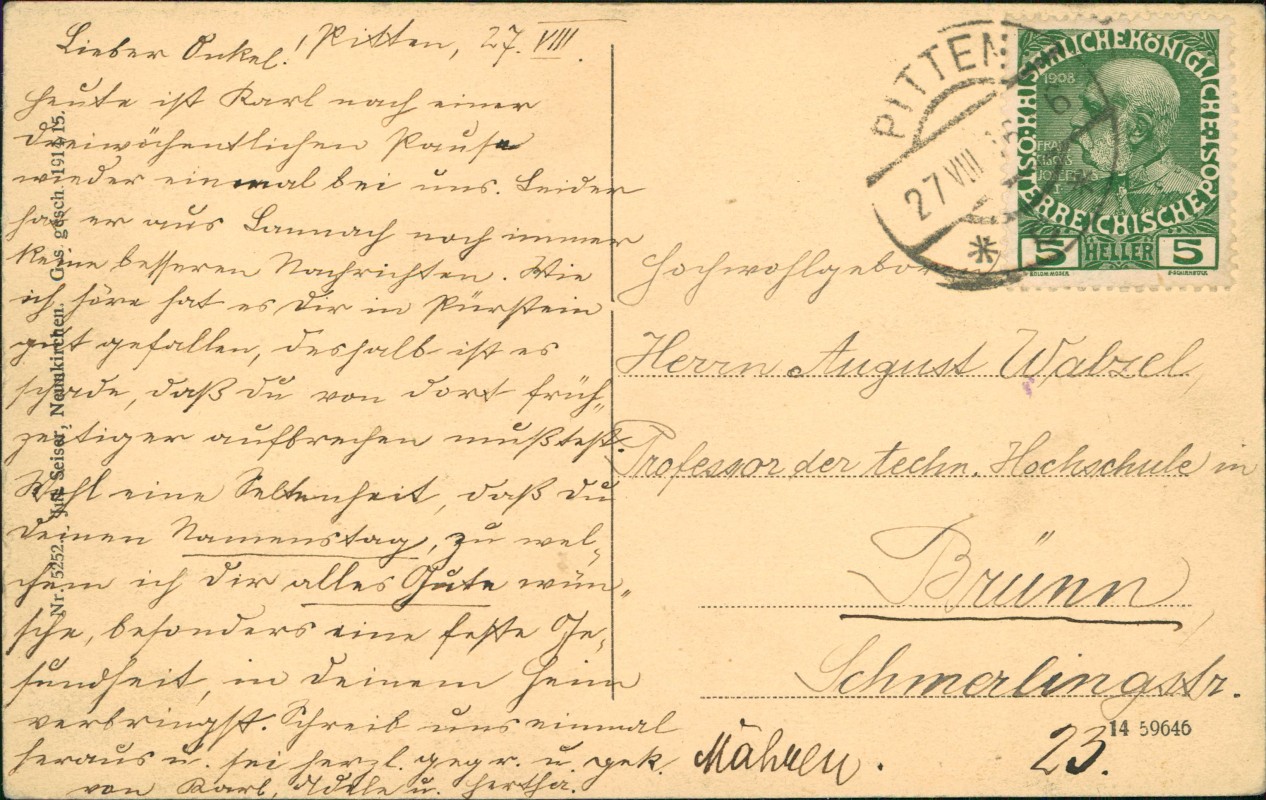 Lieber Onkel! Pitten, 27. VIII.
Heute ist Karl nach einer
dreiwöchentlichen Pause
wieder einmal bei uns. Leider
hat er aus Lannach noch immer
keine besseren Nachrichten. Wie
ich höre hat es Dir in Pürstein
gut gefallen, deshalb ist es
schade, daß du von dort früh-
zeitiger aufbrechen mußtest.
Wohl eine Seltenheit, daß du
Deinen Namenstag, zu wel-
chem ich dir alles Gute wün-
sche, besonders eine feste Ge-
sundheit, in Deinem Heim
verbringst. Schreib uns einmal
heraus u. sei herzl. gegr. u. gek.
von Karl, Adele u. Hertha.
Nr. 5252. Seiser, Neunkirchen. Ges. gesch. 1914/15.
PITTEN
27 VIII 6
KAISERLICHEKÖNIGLICHE
ÖSTERREICHISCHEPOST
1908
5 HELLER 5
Hochwohlgebor
Herrn August Walzel,
Professor der techn. Hochschule in
Brünn
Schmerlingstr.
14 59646
Mähren. 23.